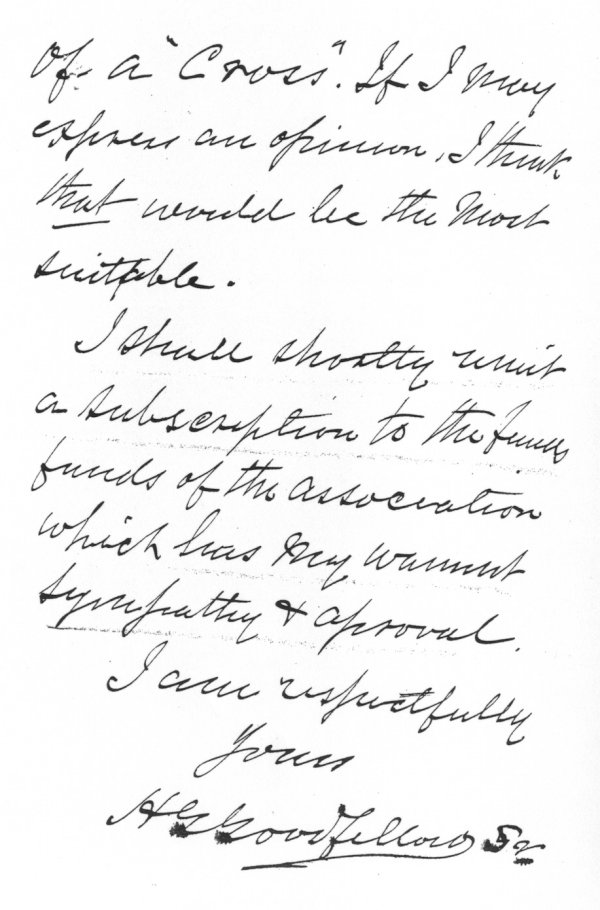 of a "Cross". If I may
express an opinion, I think
that would be the most
suitable.
I shall shortly remit
a subscription to the funds
funds of the association
which has my warmest
sympathy & aproval.
I am respectfully
Yours
H G Goodfellow Sr